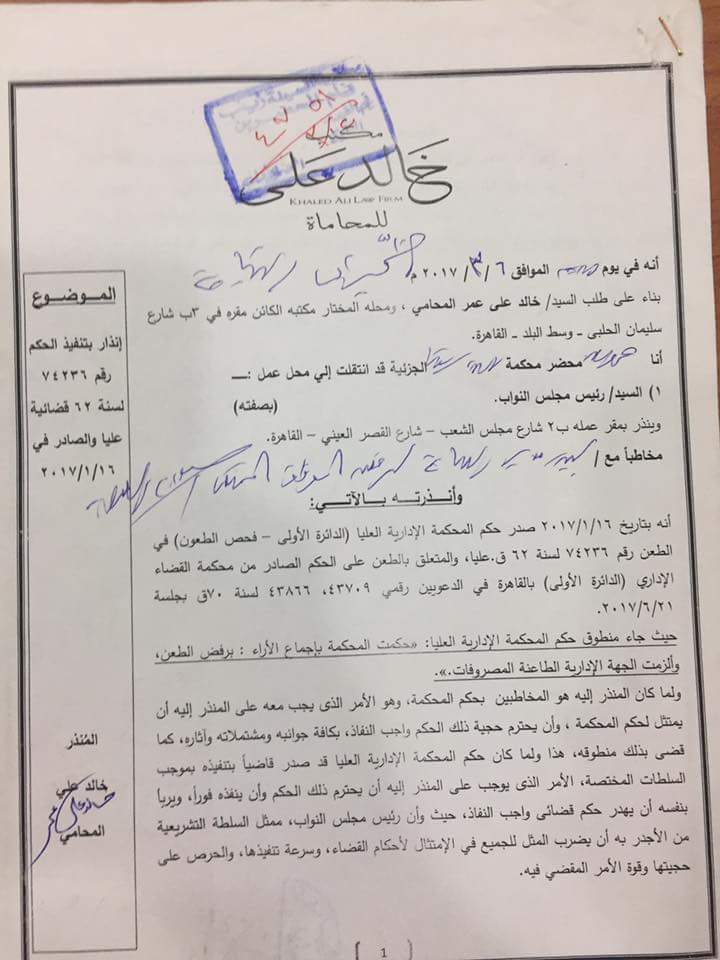 مكتب
خالد على
KHALED ALI LAW FIRM
للمحاماة
أنه في يوم الموافق ٦/٣/٢٠١٧ م
بناء على طلب السيد/ خالد على عمر المحامي ، ومحله المختار مكتبه الكائن مقره في ٣ب شارع
سليمان الحلبى – وسط البلد – القاهرة.
أنا محضر محكمة الجزئية قد انتقلت إلي محل عمل :ــــ
١) السيد/ رئيس مجلس النواب. (بصفته)
وينذر بمقر عمله ب٢ شارع مجلس الشعب – شارع القصر العيني – القاهرة.
مخاطباً مع /
وأنذرته بالآتي:
أنه بتاريخ ٢٠١٧/١/١٦ صدر حكم المحكمة الإدارية العليا (الدائرة الأولى – فحص الطعون) في
الطعن رقم ٧٤٢٣٦ لسنة ٦٢ ق.عليا، والمتعلق بالطعن على الحكم الصادر من محكمة القضاء
الإداري (الدائرة الأولى) بالقاهرة في الدعويين رقمي ٤٣٧٠٩، ٤٣٨٦٦ لسنة ٧٠ق بجلسة
٢٠١٧/٦/٢١.
حيث جاء منطوق حكم المحكمة الإدارية العليا: «حكمت المحكمة بإجماع الأراء : برفض الطعن،
وألزمت الجهة الإدارية الطاعنة المصروفات.».
ولما كان المنذر إليه هو المخاطبين بحكم المحكمة، وهو الأمر الذى يجب معه على المنذر إليه أن
يمتثل لحكم المحكمة ، وأن يحترم حجية ذلك الحكم واجب النفاذ، بكافة جوانبه ومشتملاته وآثاره، كما
قضى بذلك منطوقه، هذا ولما كان حكم المحكمة الإدارية العليا قد صدر قاضياً بتنفيذه بموجب
السلطات المختصة، الأمر الذى يوجب على المنذر إليه أن يحترم ذلك الحكم وأن ينفذه فوراً، ويربأ
بنفسه أن يهدر حكم قضائى واجب النفاذ، حيث وأن رئيس مجلس النواب، ممثل السلطة التشريعية
من الأجدر به أن يضرب المثل للجميع في الإمتثال لأحكام القضاء، وسرعة تنفيذها، والحرص على
حجيتها وقوة الأمر المقضي فيه.
الموضوع
إنذار بتنفيذ الحكم
رقم ٧٤٢٣٦
لسنة ٦٢ قضائية
عليا والصادر في
٢٠١٧/١/١٦
المُنذر
خالد علي
المحامي
1